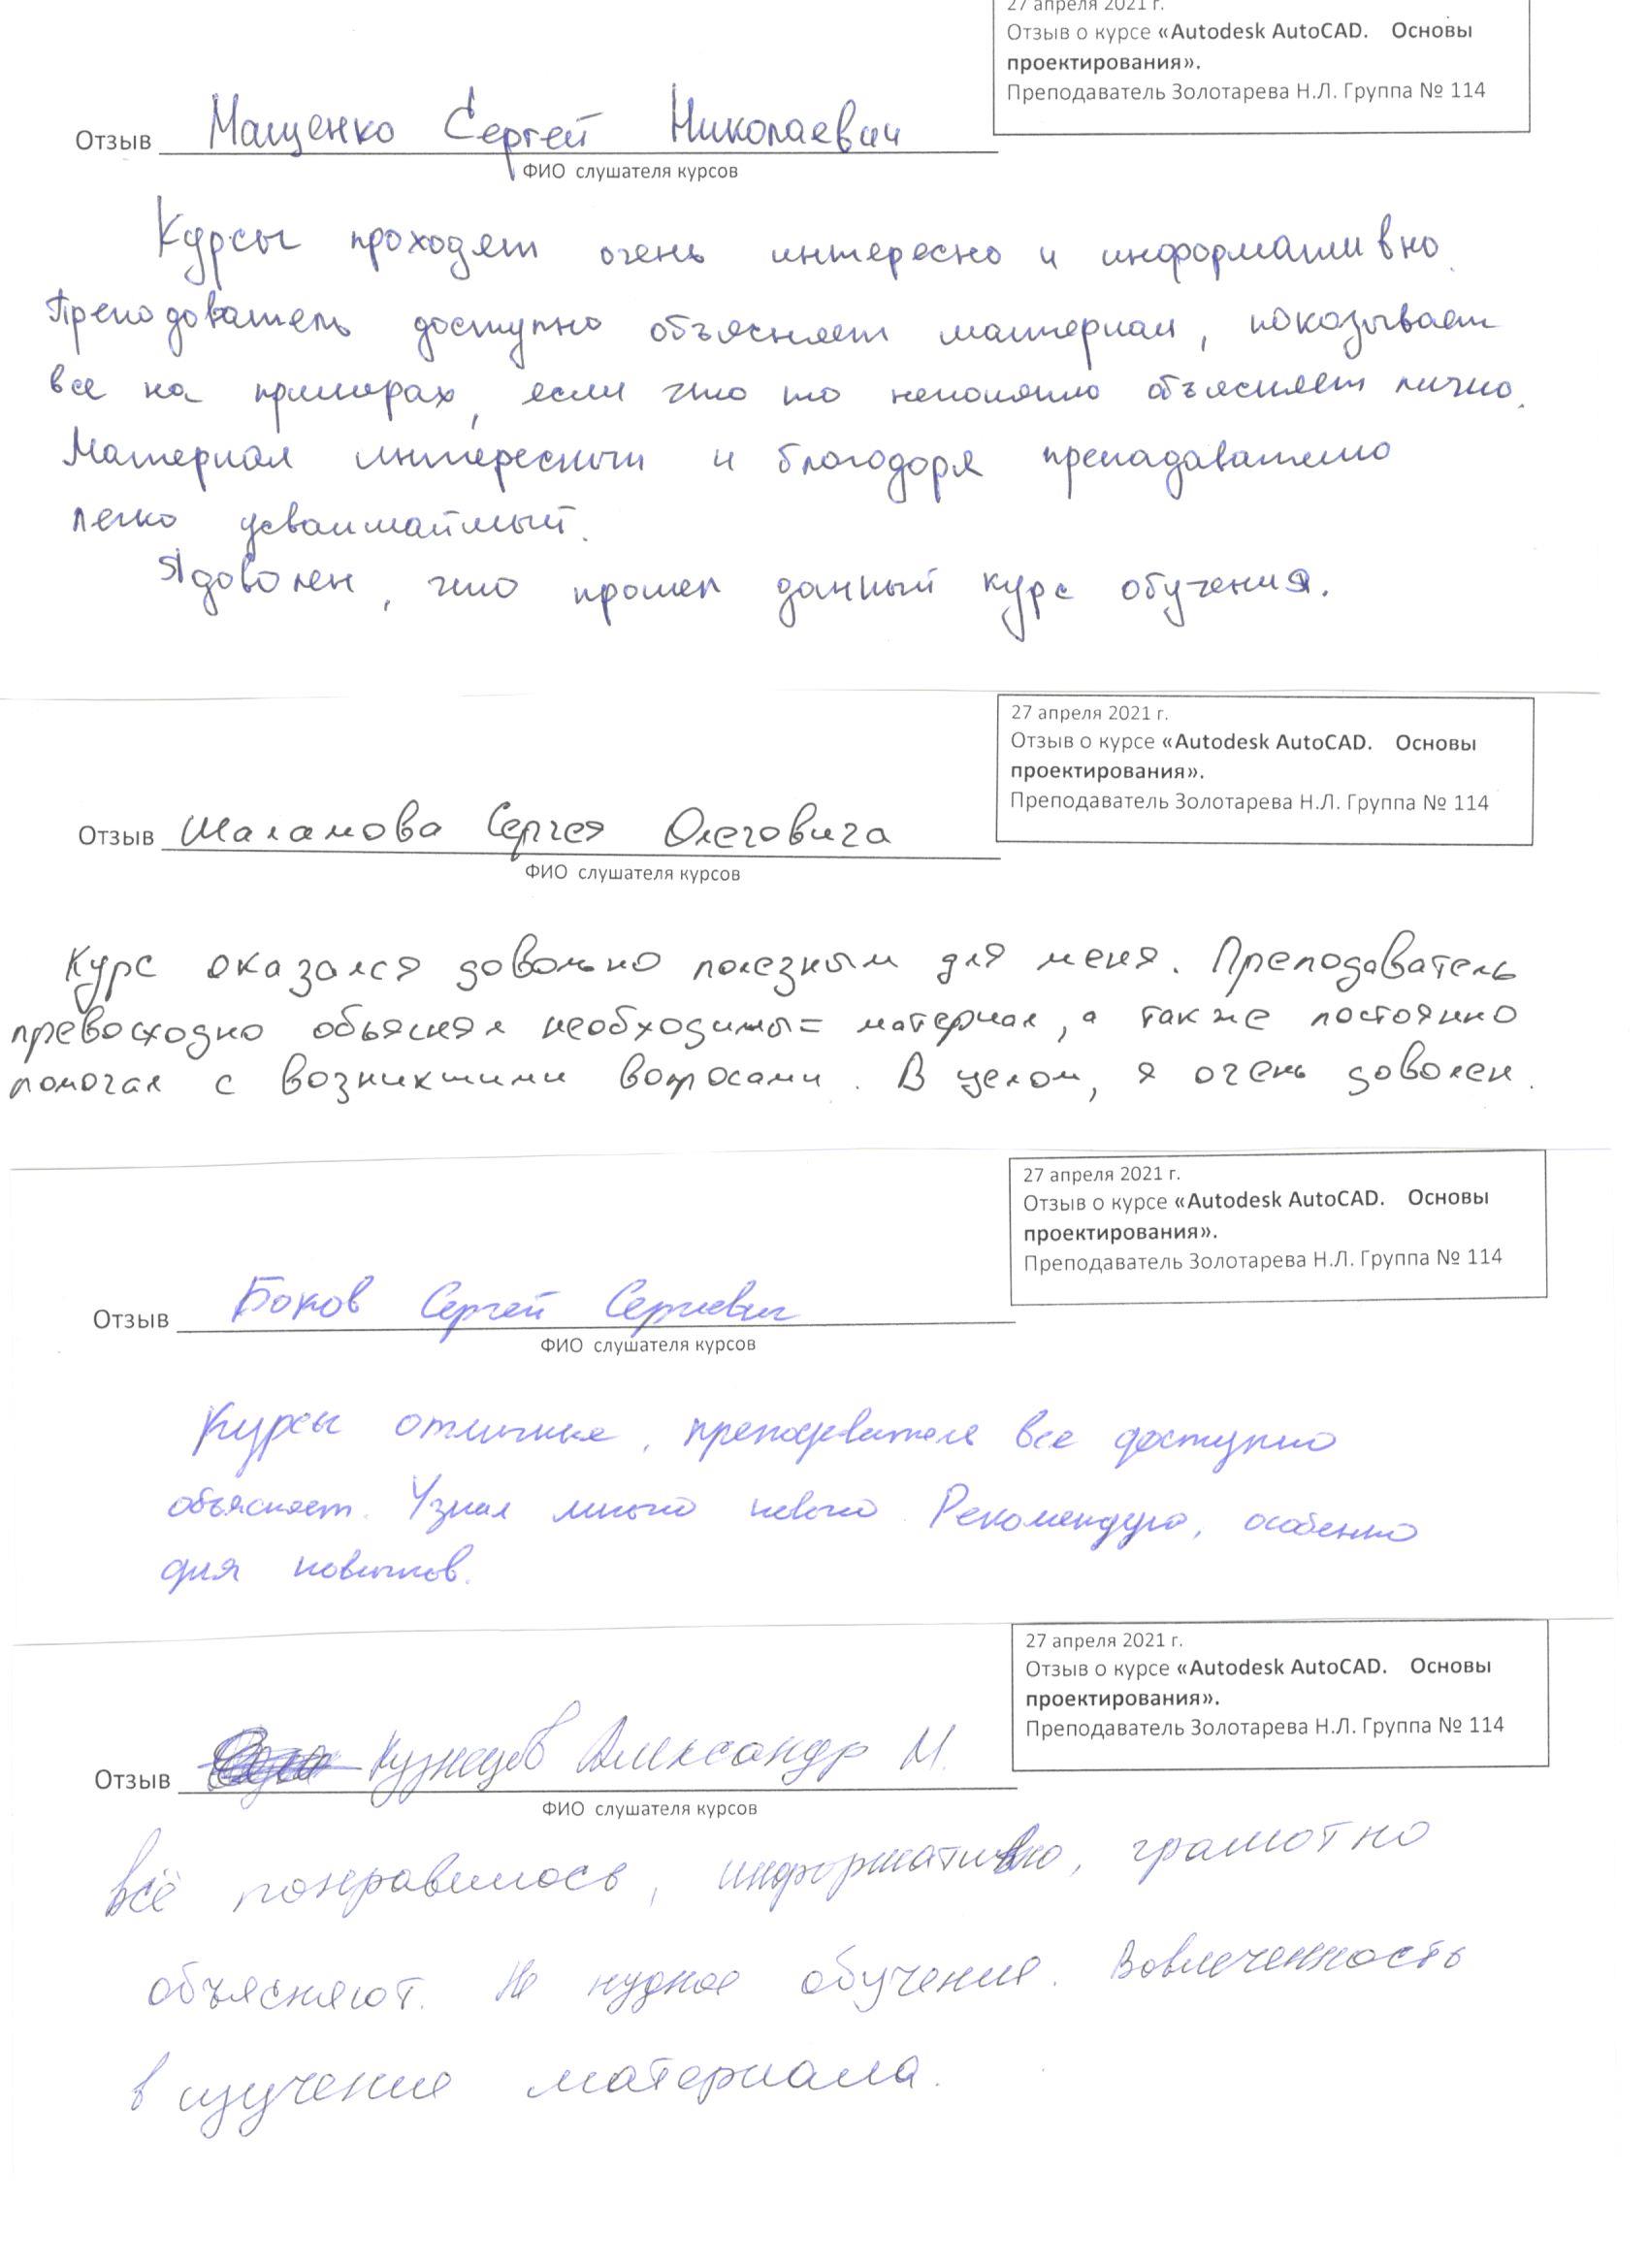 27 апреля 2021 г.
Отзыв о курсе «Autodesk AutoCAD. Основы
проектирования».
Преподаватель Золотарева Н.Л. Группа № 114
Отзыв Мащенко Сергей Николаевич
ФИО слушателя курсов
Курсы проходят очень интересно и информативно.
Преподователь доступно объясняет материал, показывает
все на примерах, если что то непонятно объясняет лично.
Материал интересный и благодоря преподавателю
легко усваимаймый.
Я доволен, что прошел данный курс обучения.
27 апреля 2021 г.
Отзыв о курсе «Autodesk AutoCAD. Основы
проектирования».
Преподаватель Золотарева Н.Л. Группа № 114
Отзыв Шаламова Сергея Олеговича
ФИО слушателя курсов
Курс оказался довольно полезным для меня. Преподаватель
превосходно объяснял необходимые материал, а также постоянно
помогал с возникшими вопросами. В целом, я очень доволен.
27 апреля 2021 г.
Отзыв о курсе «Autodesk AutoCAD. Основы
проектирования».
Преподаватель Золотарева Н.Л. Группа № 114
Отзыв Боков Сергей Сергиевич
ФИО слушателя курсов
Курсы отличные, преподаватель все доступно
объясняет. Узнал много нового. Рекомендую, особенно
для новичков.
27 апреля 2021 г.
Отзыв о курсе «Autodesk AutoCAD. Основы
проектирования».
Преподаватель Золотарева Н.Л. Группа № 114
Отзыв Кузнецов Александр М.
ФИО слушателя курсов
Всё понравилось, информативно, грамотно
объясняют. Не нудное обучение. Вовлеченность
в изучение материала.